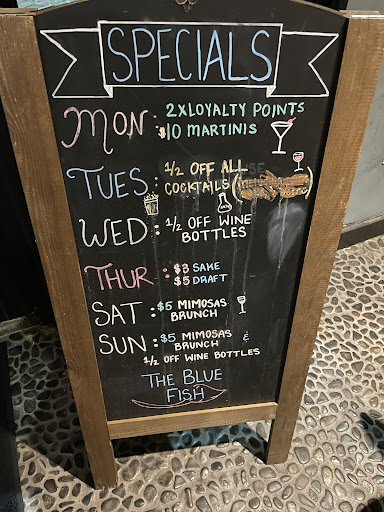 SPECIALS
MON: 2XLOYALTY POINTS
$10 MARTINIS
TUES: 1/2 OFF ALL
COCKTAILS (
WED: 1/2 OFF WINE
BOTTLES
THUR: $3 SAKE
$5 DRAFT
SAT: $5 MIMOSAS
BRUNCH
SUN: $5 MIMOSAS &
BRUNCH
1/2 OFF WINE BOTTLES
THE BLUE
FISH